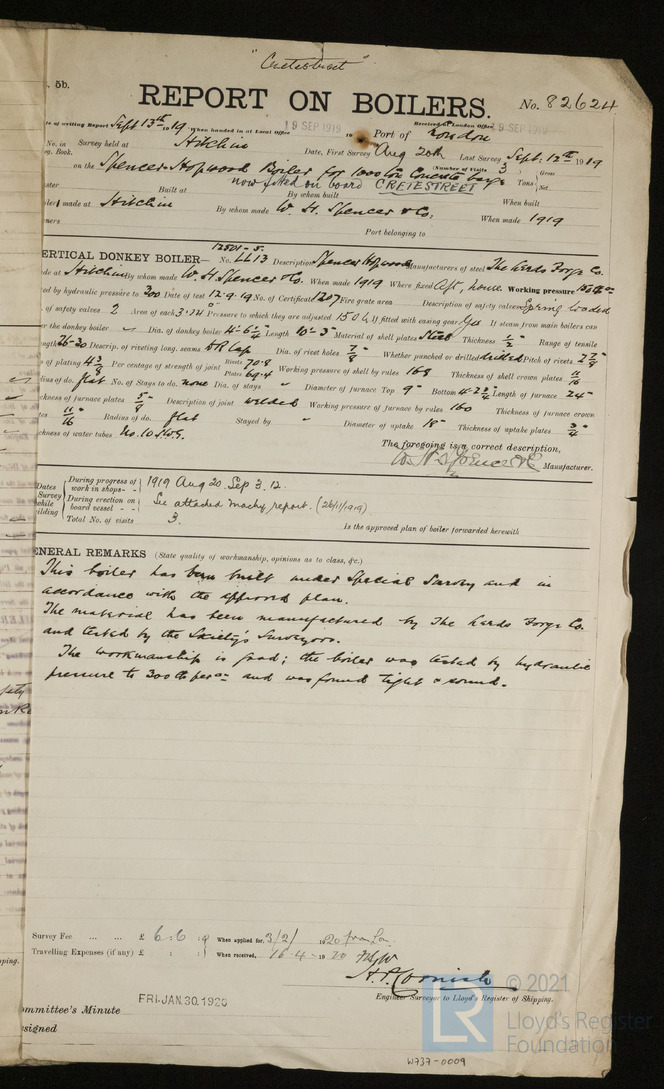 "Cretestreet"
. 5b.
REPORT ON BOILERS.
No. 82624
te of writing Report Sept 13th 1919 When handed in at Local Office 19 SEP 1919 19 Port of London
Received at London Office 19 SEP 1919
No. in Survey held at Hitchin Date, First Survey Aug 20th Last Survey Sept. 12th 1919
g. Book. (Number of Visits 3
on the Spencer-Hopwood Boiler for 1000 ton Concrete barge Tons Gross Net
now fitted on board CRETESTREET
ster Built at By whom built When built
oiler made at Hitchin By whom made W. H. Spencer & Co, When made 1919
ners Port belonging to
ERTICAL DONKEY BOILER— No. LL13 Description Spencer Hopwood Manufacturers of steel The Leeds Forge Co.
de at Hitchin By whom made W. H. Spencer & Co. When made 1919 Where fixed Aft, house Working pressure 150 lb
ted by hydraulic pressure to 300 Date of test 12.9.19 No. of Certificate 1207 Fire grate area Description of safety valves Spring loaded
of safety valves 2 Area of each 3.14 Pressure to which they are adjusted 150 lb If fitted with easing gear Yes If steam from main boilers can
er the donkey boiler Dia. of donkey boiler 4-6 1/4 Length 10-3 Material of shell plates Steel Thickness 1/2 Range of tensile
ength 26-30 Descrip. of riveting long. seams DR lap Dia. of rivet holes 7/8 Whether punched or drilled drilled Pitch of rivets 2 7/8
of plating 4 3/8 Per centage of strength of joint Rivets 70.8 Plates 69.4 Working pressure of shell by rules 168 Thickness of shell crown plates 11/16
dius of do. flat No. of Stays to do. none Dia. of stays Diameter of furnace Top 9" Bottom 4-2 3/4 Length of furnace 24"
ckness of furnace plates 5/8 Description of joint welded Working pressure of furnace by rules 160 Thickness of furnace crown
tes 11/16 Radius of do. flat Stayed by Diameter of uptake 18" Thickness of uptake plates 3/4
ckness of water tubes No. 10 S.W.G.
The foregoing is a correct description,
Manufacturer.
Dates
Survey
while
ilding
During progress of work in shops - - 1919 Aug 20. Sep 3. 12.
During erection on board vessel - - See attached machy report. (26/11/1919)
Total No. of visits 3.
Is the approved plan of boiler forwarded herewith
ENERAL REMARKS (State quality of workmanship, opinions as to class, &c.)
This boiler has been built under Special Survey and in
accordance with the approved plan.
The material has been manufactured by The Leeds Forge Co.
and tested by the Society's Surveyors.
The workmanship is good; the boiler was tested by hydraulic
pressure to 300 lb per □" and was found tight & sound.
Survey Fee ... ... £ 6 : 6 : When applied for, 3/2/ 1920
Travelling Expenses (if any) £ : : When received, 16.4.1920
H.P. Cornish
Engineer Surveyor to Lloyd's Register of Shipping.
ommittee's Minute
FRI. JAN. 30. 1920
ssigned
© 2021
Lloyd's Register
Foundation
LR
W737-0009